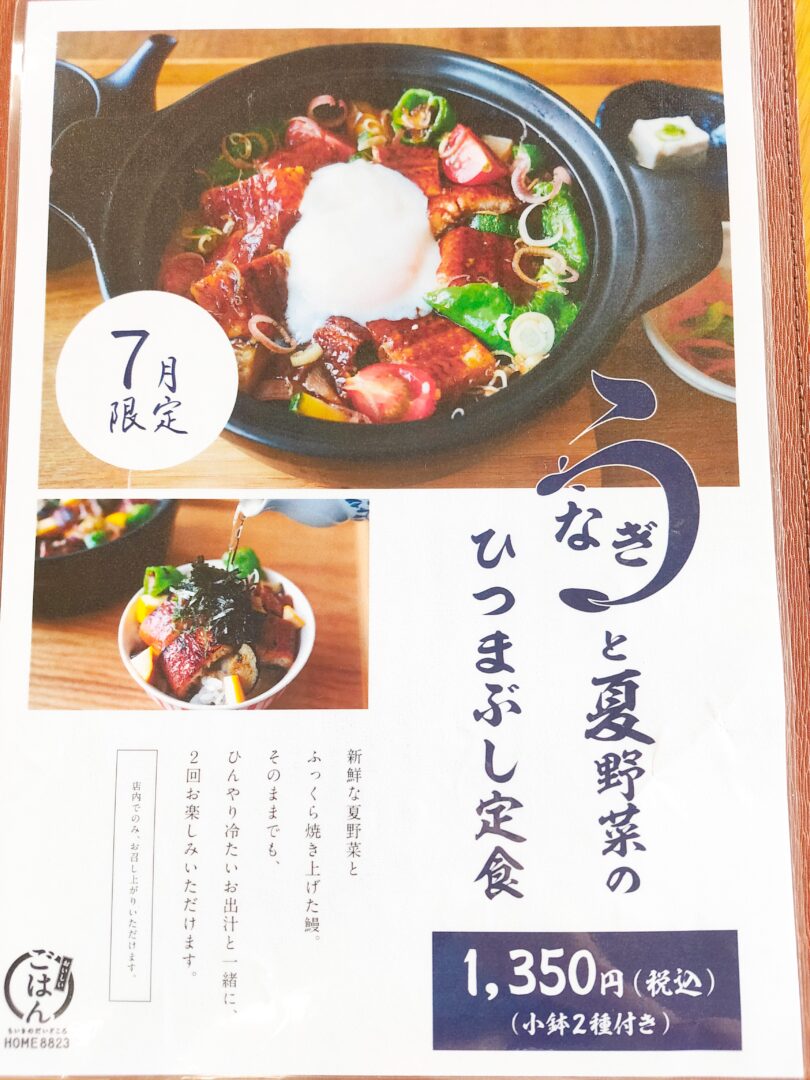 7月
限定
うなぎと夏野菜の
ひつまぶし定食
新鮮な夏野菜と
ふっくら焼き上げた鰻。
そのままでも、
ひんやり冷たいお出汁と一緒に、
2回お楽しみいただけます。
店内でのみ、お召し上がりいただけます。
1,350円(税込)
(小鉢2種付き)
ごはん
ちいさめだいどころ
HOME8823